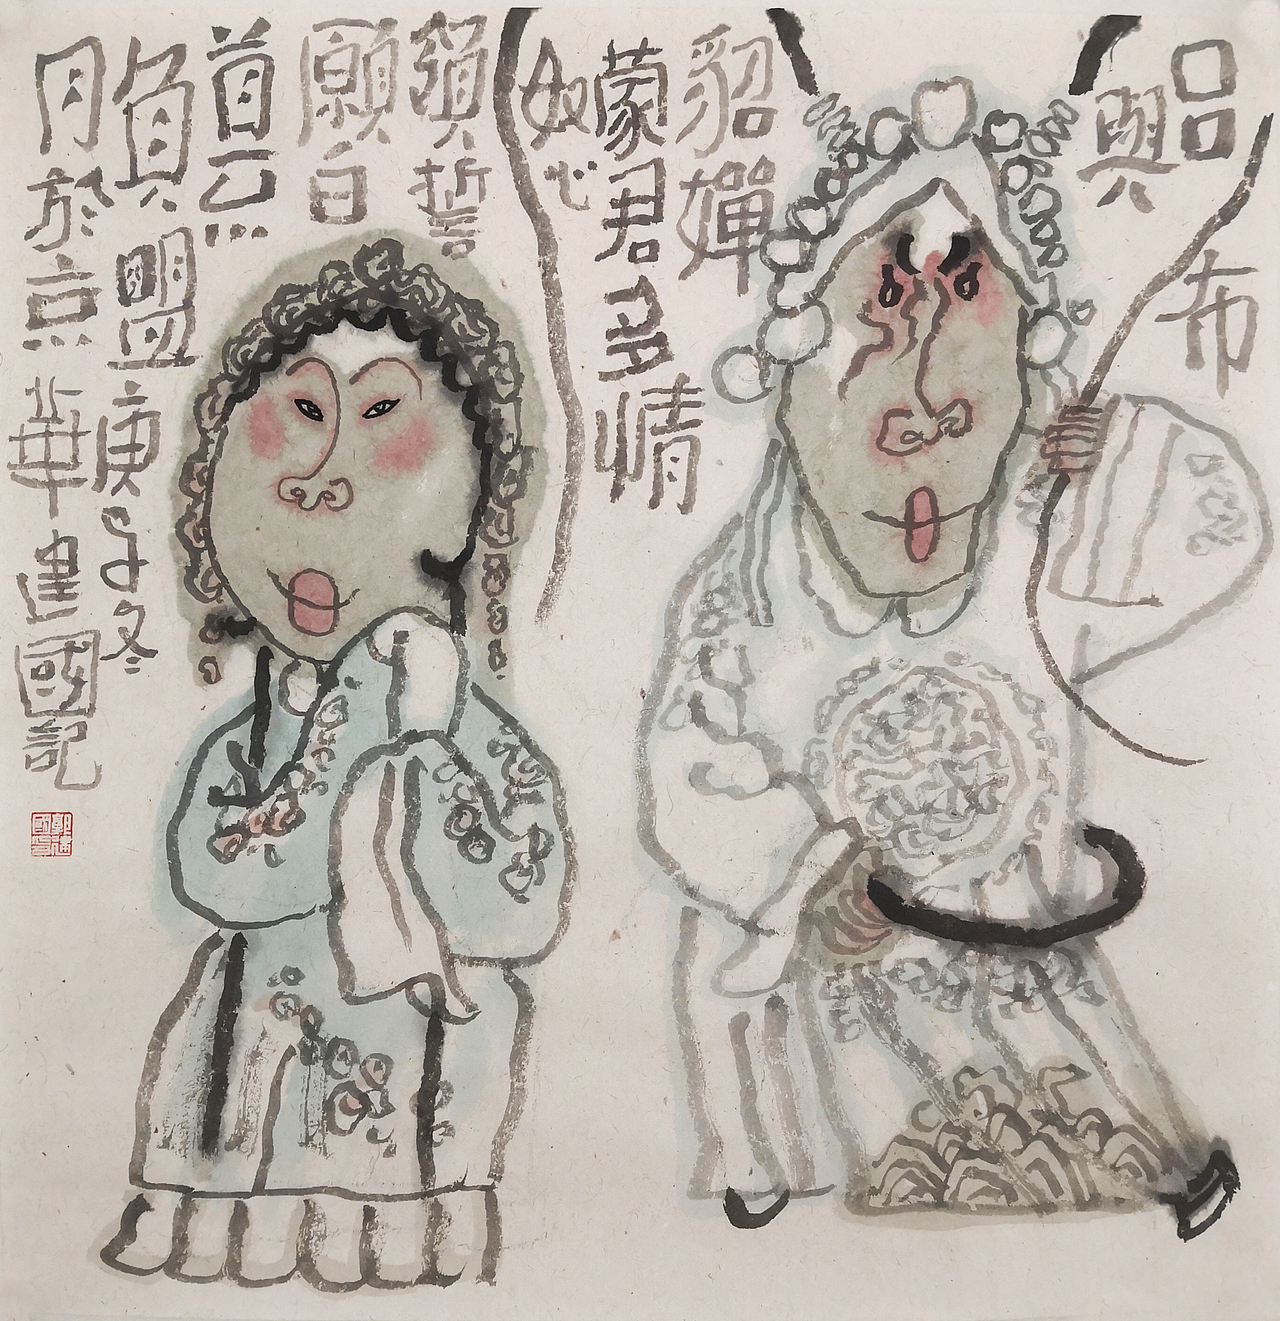 呂布
與
貂嬋
蒙君多情
奴心
領誓
願白
首不
負盟庚子冬
月於京華建國記